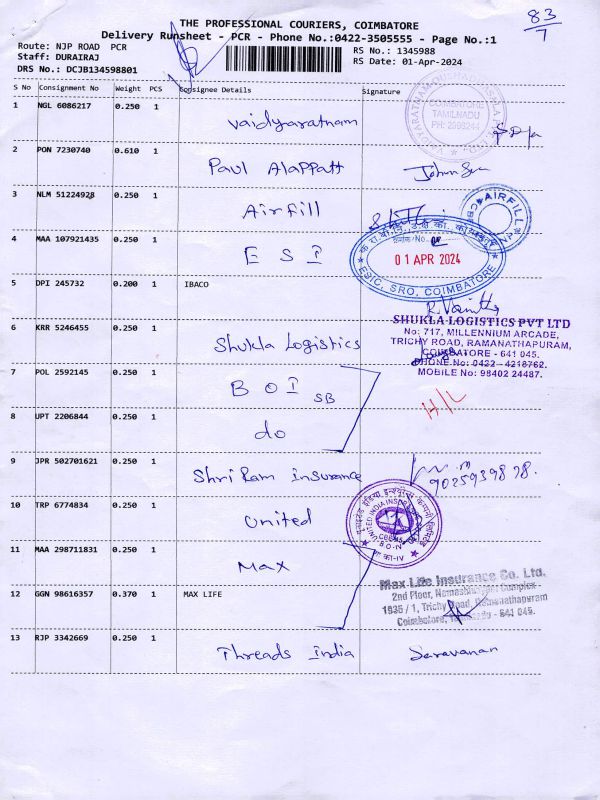 THE PROFESSIONAL COURIERS, COIMBATORE
83
7
Delivery Runsheet - PCR - Phone No.:0422-3505555 - Page No.:1
Route: NJP ROAD PCR
Staff: DURAIRAJ
DRS No.: DCJB134598801
RS No.: 1345988
RS Date: 01-Apr-2024
S No Consignment No Weight PCS Consignee Details Signature
1 NGL 6086217 0.250 1 Vaidyaratnam
COIMBATORE
TAMILNADU
2 PON 7230740 0.610 1 Paul Alappatt
3 NLM 51224928 0.250 1 Airfill
AIRFILL
4 MAA 107921435 0.250 1 E S I
01 APR 2024
ESIC, SRO, COIMBATORE
5 DPI 245732 0.200 1 IBACO R. Vanitha
6 KRR 5246455 0.250 1 Shukla Logistics
SHUKLA LOGISTICS PVT LTD
No: 717, MILLENNIUM ARCADE,
TRICHY ROAD, RAMANATHAPURAM,
COIMBATORE - 641 045.
PHONE No: 0422 - 4218762.
MOBILE No: 98402 24487.
7 POL 2592145 0.250 1 B O I SB
H/L
8 UPT 2206844 0.250 1 do
9 JPR 502701621 0.250 1 Shri Ram Insurance
9025939828.
10 TRP 6774834 0.250 1 United
11 MAA 298711831 0.250 1 Max
12 GGN 98616357 0.370 1 MAX LIFE
Max Life Insurance Co. Ltd.
2nd Floor, Complex
1835 / 1, Trichy Road, Ramanathapuram
Coimbatore, - 641 045.
13 RJP 3342669 0.250 1 Threads India Saravanan